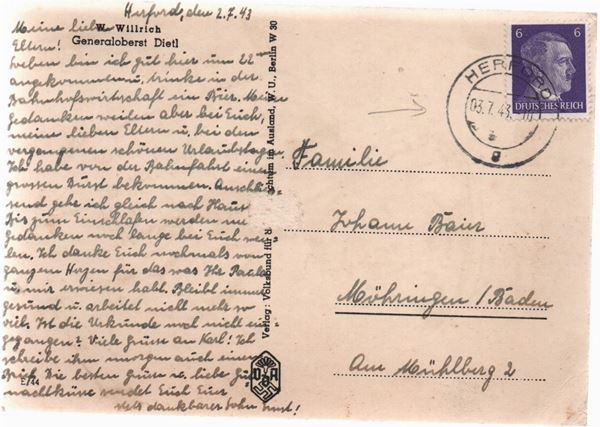 Herford, den 2.7.43
W. Willrich
Generaloberst Dietl
Meine lieben
Eltern!
Soeben bin ich gut hier um 22
angekommen u. trinke in der
Bahnhofswirtschaft ein Bier. Meine
Gedanken weilen aber bei Euch,
meine lieben Eltern u. bei den
vergangenen schönen Urlaubstagen
Ich habe von der Bahnfahrt einen
grossen Durst bekommen. Anschlies
send gehe ich gleich nach Haus
Bis zum Einschlafen werden m
Gedanken noch lange bei Euch wei
len. Ich danke Euch nochmals von
ganzem Herzen für das was Ihr
u. mir erwiesen habt. Bleibt immer
gesund u. arbeitet nicht mehr so
viel. Ist die Urkunde noch nicht ein
gegangen? Viele Grüsse an Karl! Ich
schreibe ihm morgen auch einen
Brief. Die besten Grüsse u. liebe Gute
nachtküsse sendet Euch Euer
stets dankbarer Sohn Ernst!
E/44
Verlag: Volksbund für d
chtum im Ausland, W. U., Berlin W 30
VDA
6 6
DEUTSCHES REICH
HERFORD
03.7.43
g
Familie
Johann Baier
Möhringen/Baden
Am Mühlberg 2